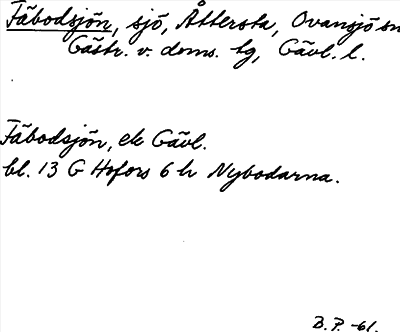 Fäbodsjön, sjö, Åttersta, Ovansjö sn
Gästr. v. doms. tg, Gävl. l.
Fäbodsjön, ek Gävl.
bl. 13 G Hofors 6 h Nybodarna.
B. P. -61.